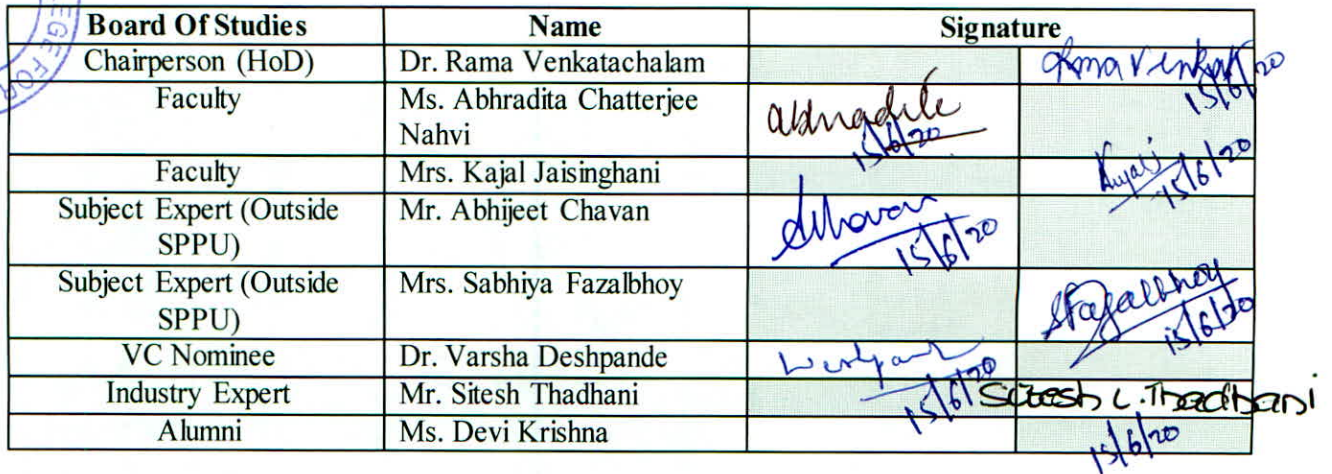 GE FOR
Board Of Studies Name Signature
Chairperson (HoD) Dr. Rama Venkatachalam Rama Venkat
15/6/20
Faculty Ms. Abhradita Chatterjee
Nahvi
Abhradita
15/6/20
Faculty Mrs. Kajal Jaisinghani Kajal J
15/6/20
Subject Expert (Outside
SPPU)
Mr. Abhijeet Chavan AChavan
15/6/20
Subject Expert (Outside
SPPU)
Mrs. Sabhiya Fazalbhoy SFazalbhoy
15/6/20
VC Nominee Dr. Varsha Deshpande
15/6/20
Industry Expert Mr. Sitesh Thadhani Sitesh L. Thadhani
Alumni Ms. Devi Krishna
15/6/20